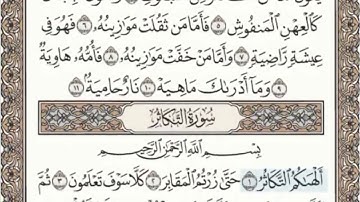 كَٱلْعِهْنِ ٱلْمَنفُوشِ ٥ فَأَمَّا مَن ثَقُلَتْ مَوَٰزِينُهُۥ ٦ فَهُوَ فِى
عِيشَةٍ رَّاضِيَةٍ ٧ وَأَمَّا مَنْ خَفَّتْ مَوَٰزِينُهُۥ ٨ فَأُمُّهُۥ هَاوِيَةٌ
٩ وَمَآ أَدْرَىٰكَ مَا هِيَهْ ١٠ نَارٌ حَامِيَةٌۢ ١١
سُورَةُ التَّكَاثُرِ
بِسْمِ ٱللَّهِ ٱلرَّحْمَٰنِ ٱلرَّحِيمِ
أَلْهَىٰكُمُ ٱلتَّكَاثُرُ ١ حَتَّىٰ زُرْتُمُ ٱلْمَقَابِرَ ٢ كَلَّا سَوْفَ تَعْلَمُونَ ٣ ثُمَّ